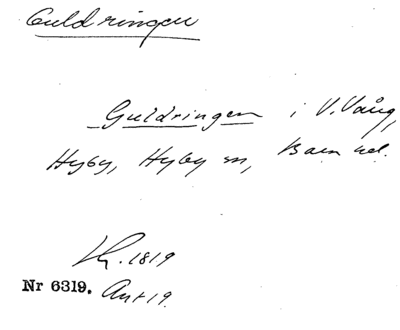 Guldringen
Guldringen i V. Vång,
Hyby, Hyby sn, Bara hd.
1819
Nr 6319. Ant 19.